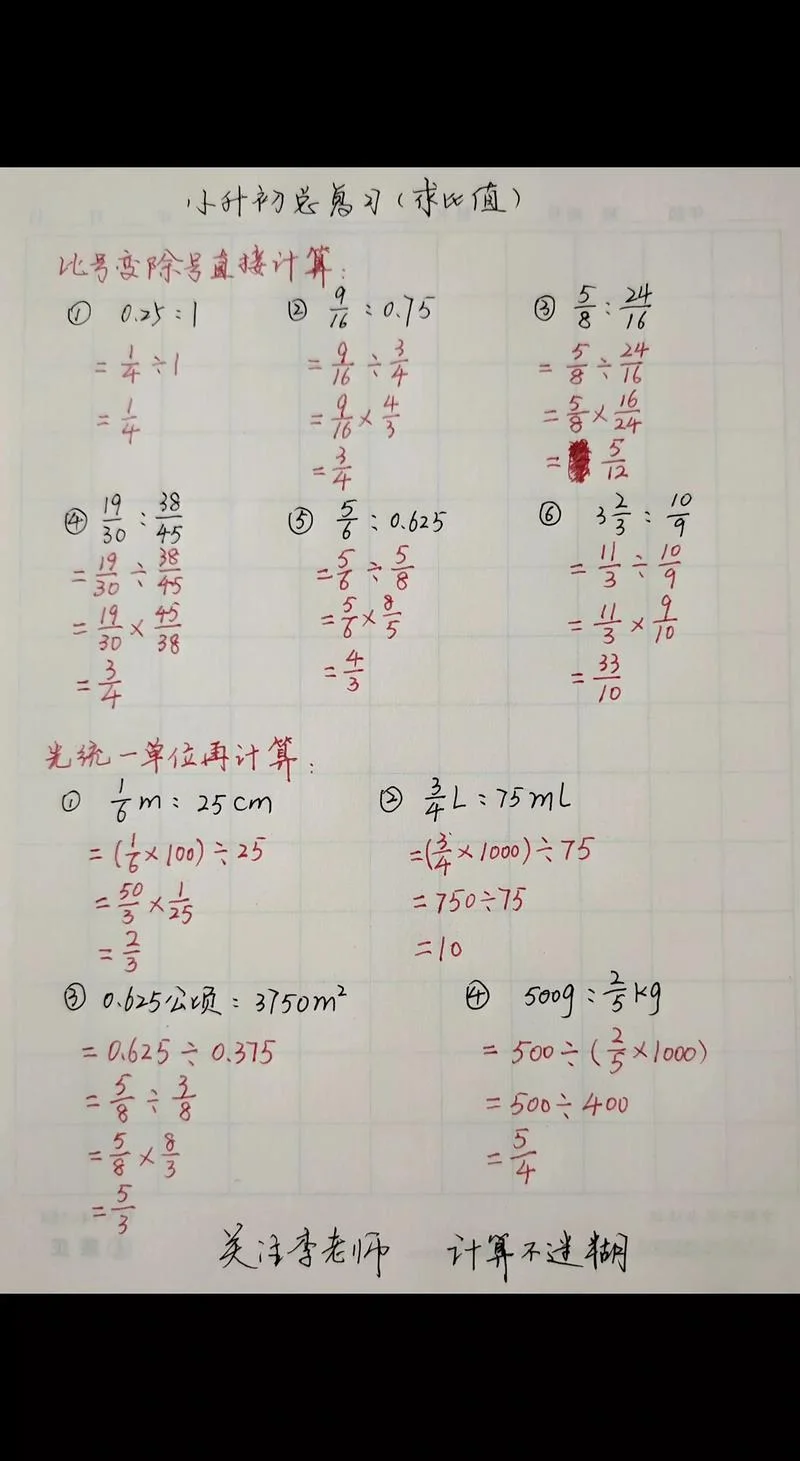 小升初总复习(求比值)
比号变除号直接计算:
① 0.25:1
= 1/4 ÷ 1
= 1/4
② 9/16 : 0.75
= 9/16 ÷ 3/4
= 9/16 × 4/3
= 3/4
③ 5/8 : 24/16
= 5/8 ÷ 24/16
= 5/8 × 16/24
= 5/12
④ 19/30 : 38/45
= 19/30 ÷ 38/45
= 19/30 × 45/38
= 3/4
⑤ 5/6 : 0.625
= 5/6 ÷ 5/8
= 5/6 × 8/5
= 4/3
⑥ 3 2/3 : 10/9
= 11/3 ÷ 10/9
= 11/3 × 9/10
= 33/10
先统一单位再计算:
① 1/6 m : 25cm
= (1/6 × 100) ÷ 25
= 50/3 × 1/25
= 2/3
② 3/4 L : 75mL
= (3/4 × 1000) ÷ 75
= 750÷75
= 10
③ 0.625公顷 : 3750m²
= 0.625 ÷ 0.375
= 5/8 ÷ 3/8
= 5/8 × 8/3
= 5/3
④ 500g : 2/5 kg
= 500 ÷ (2/5 × 1000)
= 500 ÷ 400
= 5/4
关注李老师 计算不迷糊